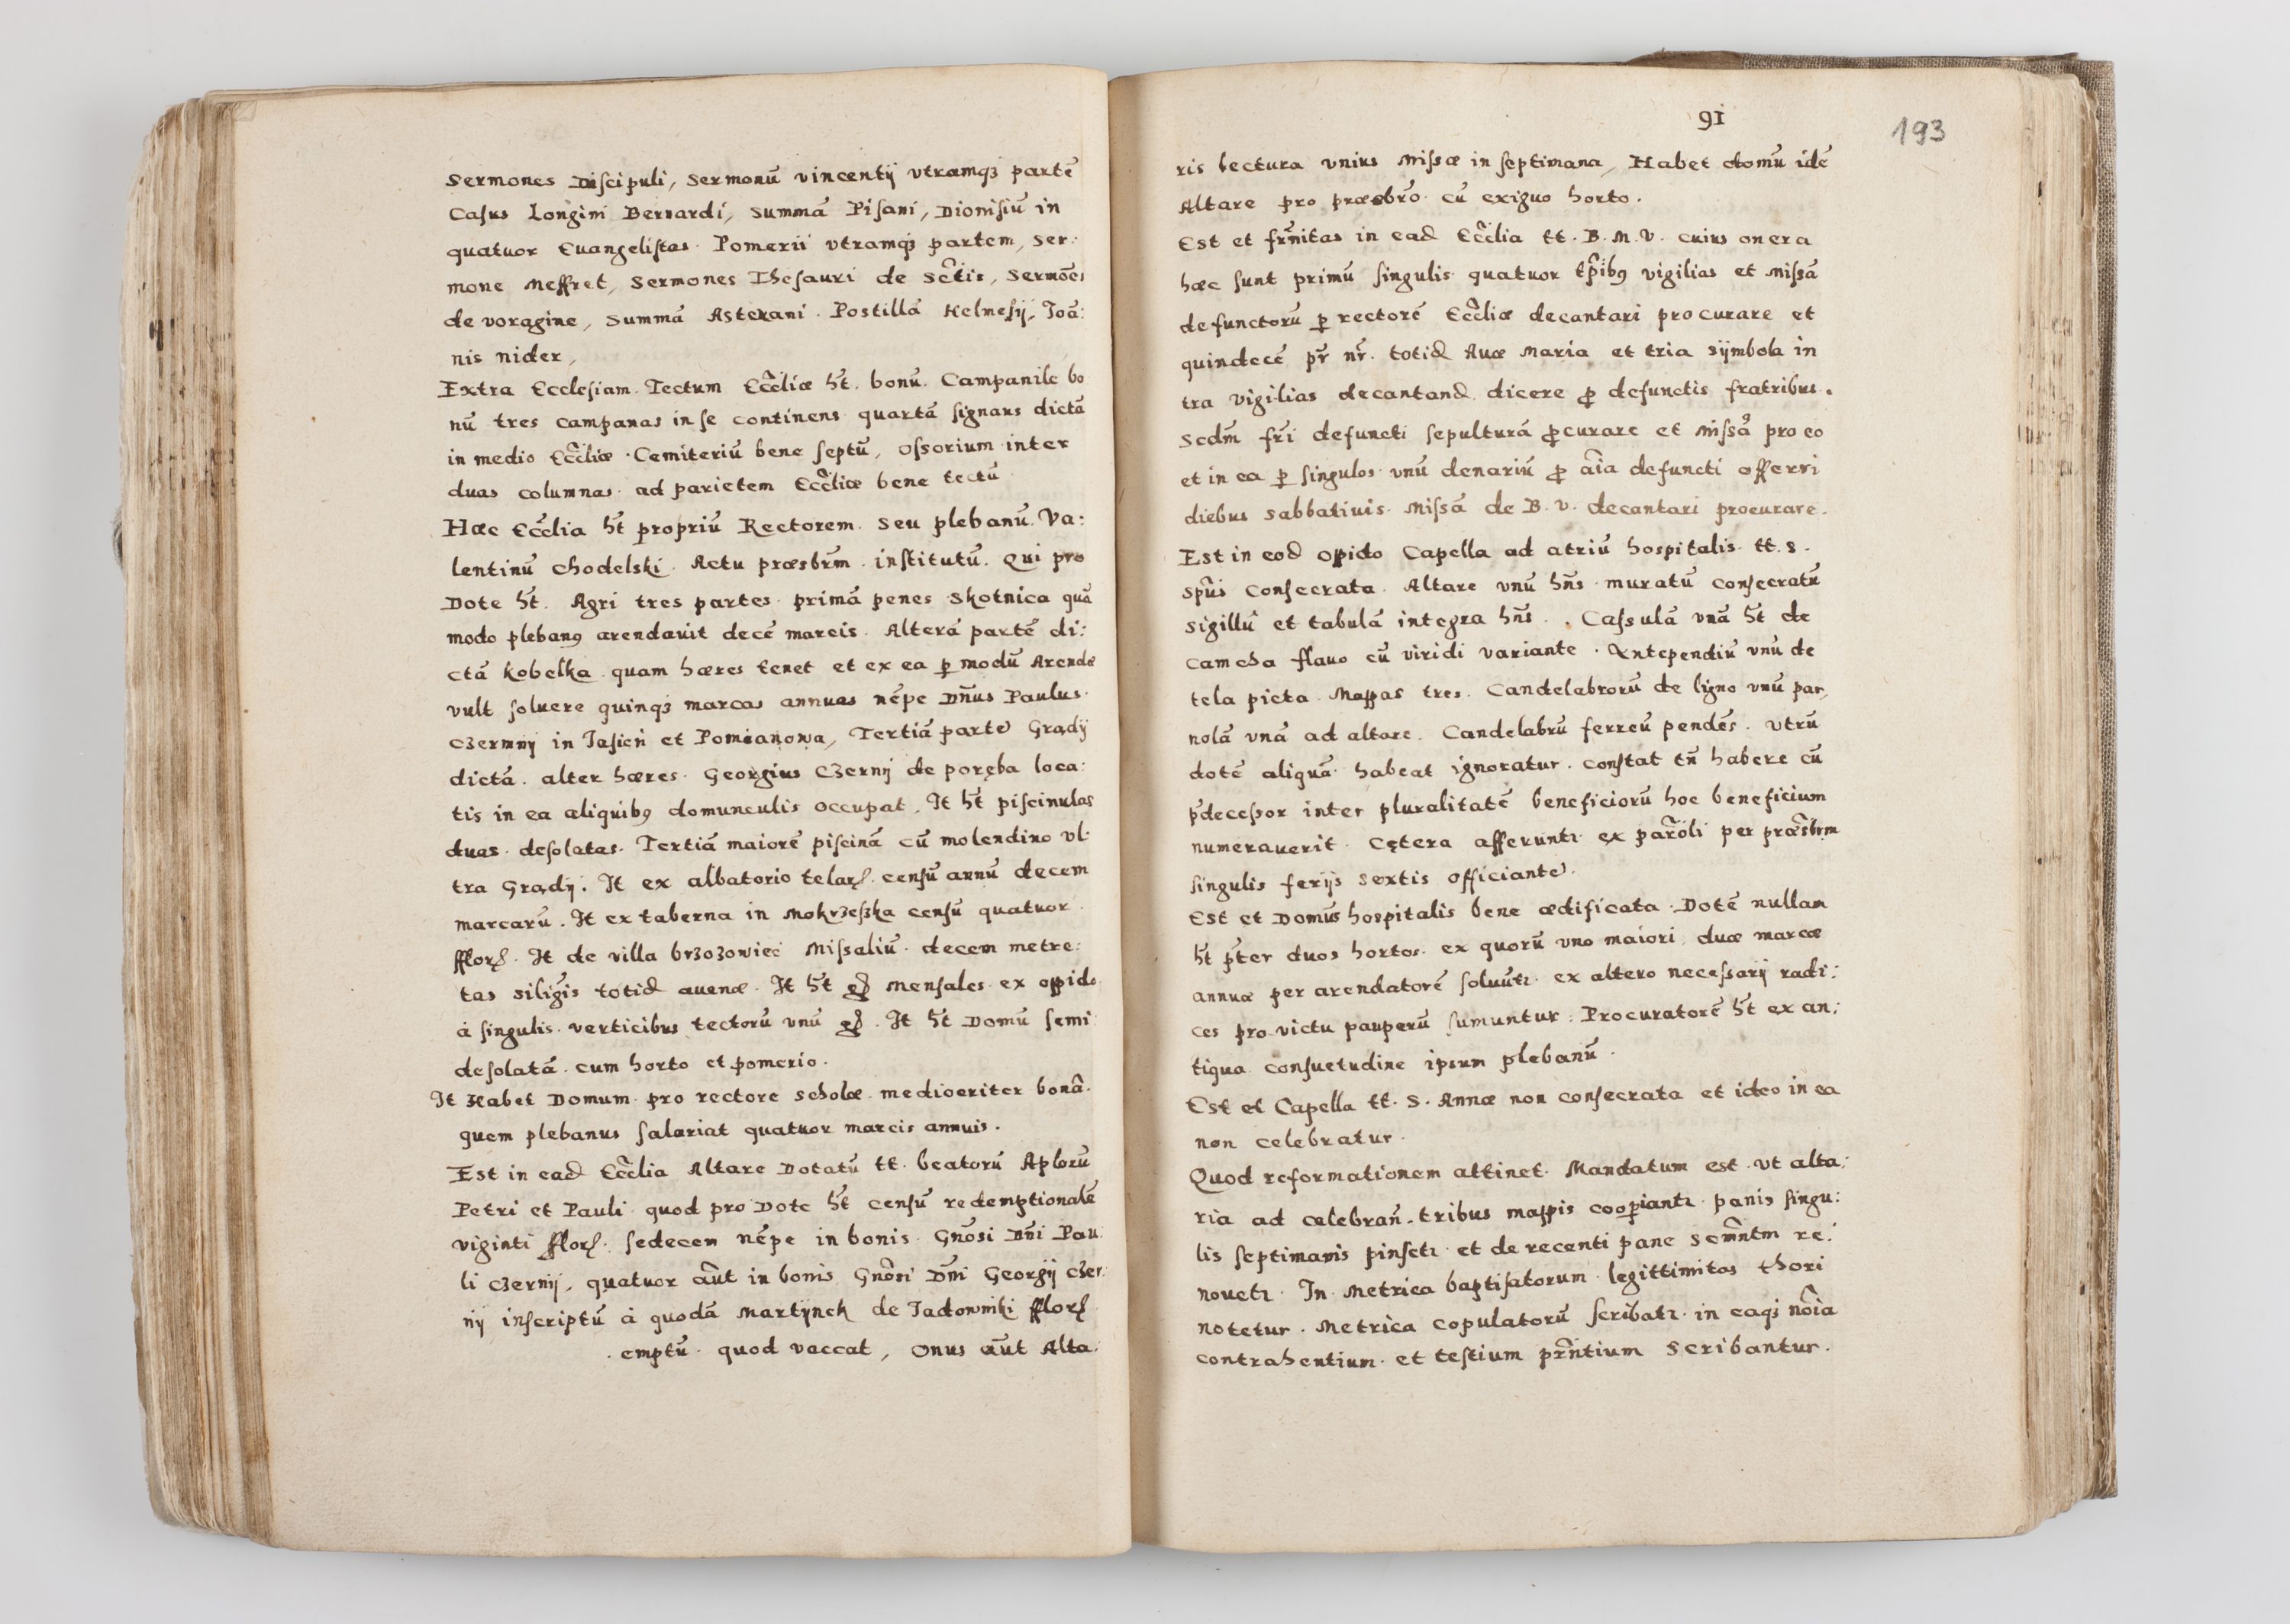 Sermones Diſcipuli, Sermonū vincentij vtramqȝ partē
Caſus Longini Bernardi, Summā Piſani, Dioniſiū in
quatuor Euangeliſtas. Pomerii vtramqȝ partem, Ser:
mone Meffret, Sermones Theſauri de Sctis, Sermōes
de voragine, Summā Astexani. Postillā Helmeſij, Joā:
nis nider,
Extra Eccleſiam. Tectum Eccliæ ht. bonū. Campanile bo
nū tres campanas in ſe continens quartā ſignans dictā
in medio Eccliæ. Cemiteriū bene ſeptū, oſsorium inter
duas columnas ad parietem Eccliæ bene tectū
Hæc Ecclia ht propriū Rectorem. Seu plebanū. Va:
lentinū Chodelski. Actu præsbrm. inſtitutū. Qui pro
Dote ht. Agri tres partes. primā penes Skotnica quā
modo plebanꝰ arendauit decē marcis. Alterā partē di:
ctā Kobelka. quam hæres tenet et ex ea ꝑ modū Arendæ
vult ſoluere quinqȝ marcas annuas nēpe Dn̄us Paulus.
Czermij in Jaſień et Pomianowa, Tertiā partē Grądÿ
dictā. alter hæres. Georgius Czernij de poręba loca:
tis in ea aliquibꝰ domunculis occupat. It ht piſcinulas
duas. deſolatas. Tertiā maiorē piſcinā cū molendino vl:
tra Grądÿ. It ex albatorio telarꝭ. cenſū annū decem
marcarū. It ex taberna in Mokrzeſzka cenſū quatuor.
fflorꝭ. It de villa brzozowiec Miſsaliū. decem metre:
tas siliginis totid auenæ. It ht gꝭ Menſales. ex oppido
à ſingulis. verticibus tectorū vnū gꝭ. It ht Domū ſemi:
deſolatā. cum horto et pomerio.
It Habet Domum. pro rectore scholæ. mediocriter bonā.
quem plebanus ſalariat quatuor marcis annuis.
Est in ead Ecclia Altare Dotatū tt. beatorū Aplorū
Petri et Pauli. quod pro Dote ht cenſū redemptionalē
viginti fflorꝭ. ſedecem nēpe in bonis. Gnōsi Dn̄i Pau:
li Czernij, quatuor aūt in bonis Gnōsi Dn̄i Georgij Czer:
nij inſcriptū à quodā Martÿnek de Jadowniki fflorꝭ
. emptū. quod vaccat, onus aūt Alta:
91
193
ris lectura vnius miſsæ in ſeptimana, Habet domū idē
Altare pro præsbro cū exiguo horto.
Est et frnitas in ead Ecclia tt. B. M. V. cuius onera
hæc ſunt primū ſingulis quatuor tpibꝰ vigilias et miſsā
defunctorū ꝑ rectorē Eccliæ decantari procurare et
quindecē pr nr. totid Auæ Maria et tria sÿmbola in
tra vigilias decantand. dicere ꝓ defunctis fratribus.
Scdm fri defuncti ſepulturā ꝓcurare et miſsā pro eo
et in ea ꝑ ſingulos vnū denariū ꝓ aia defuncti offerri
diebus sabbatiuis. miſsā de B. v. decantari procurare.
Est in eod oppido Capella ad atriū hospitalis. tt. S.
Spūs conſecrata. Altare vnū hn̄s. muratū conſecratū
sigillū et tabulā integra hn̄s. . Caſsulā vnā ht de
camcha flauo cū viridi variante. Antependiū vnū de
tela picta. Mappas tres. Candelabrorū de ligno vnū par,
nolā vnā ad altare. Candelabrū ferreū pendēs. Vtrū
dotē aliquā. habeat ignoratur. conſtat tn̄ habere cū
p̄deceſsor inter pluralitatē beneficiorū hoc beneficium
numerauerit. Cętera afferuntr ex paroli per præsbrm
ſingulis ferijs sextis officiante.
Est et Domus hospitalis bene ædificata. Dotē nullam
ht p̄ter duos hortos. ex quorū vno maiori, duæ marcæ
annuæ per arendatorē ſoluūtr. ex altero neceſsarij radi:
ces pro victu pauperū ſumuntur. Procuratorē ht ex an:
tiqua conſuetudine ipsum plebanū.
Est et Capella tt. S. Annæ non conſecrata et ideo in ea
non celebratur.
Quod reformationem attinet. Mandatum est. vt alta:
ria ad celebran̄. tribus mappis cooꝑiantr. panis ſingu:
lis ſeptimanis pinſetr. et de recenti pane Scm̄ntm re:
nouetr. In Metrica baptiſatorum. legittimitas thori
notetur. Metrica copulatorū ſcribatr. in eaqȝ noīa
contrahentium. et teſtium prn̄tium Scribantur.